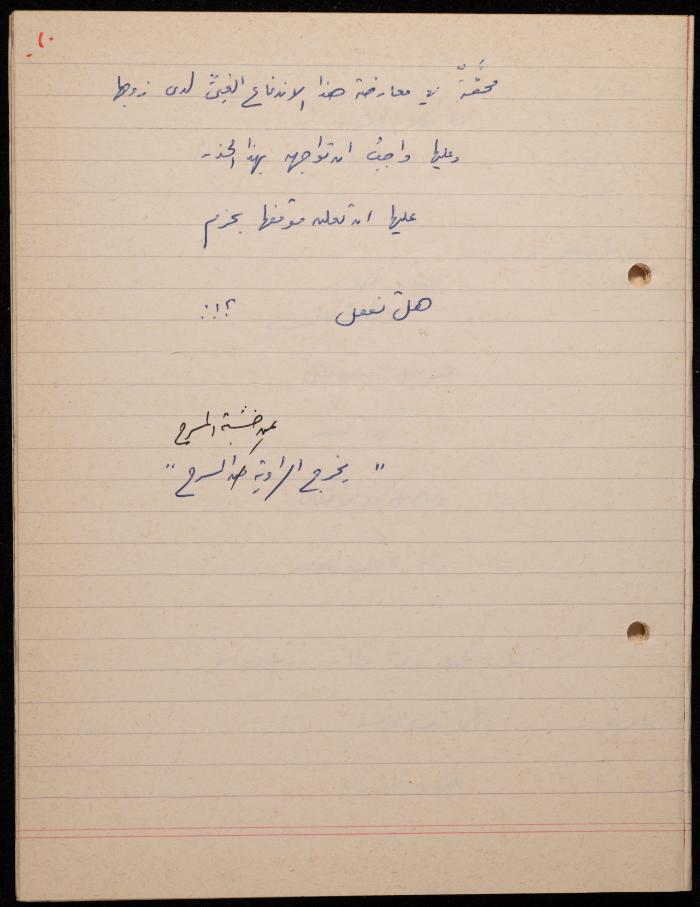 ١٠
محقّةٌ في معارضة هذا الاندفاع الغبيّ لدى زوجها
وعليها واجبُ ان تواجهه بهذا الحذر
عليها ان تعلن موقفها بحزم
هل تفعل ؟!!
عن خشبة المسرح
" يخرج الراوية عن المسرح "